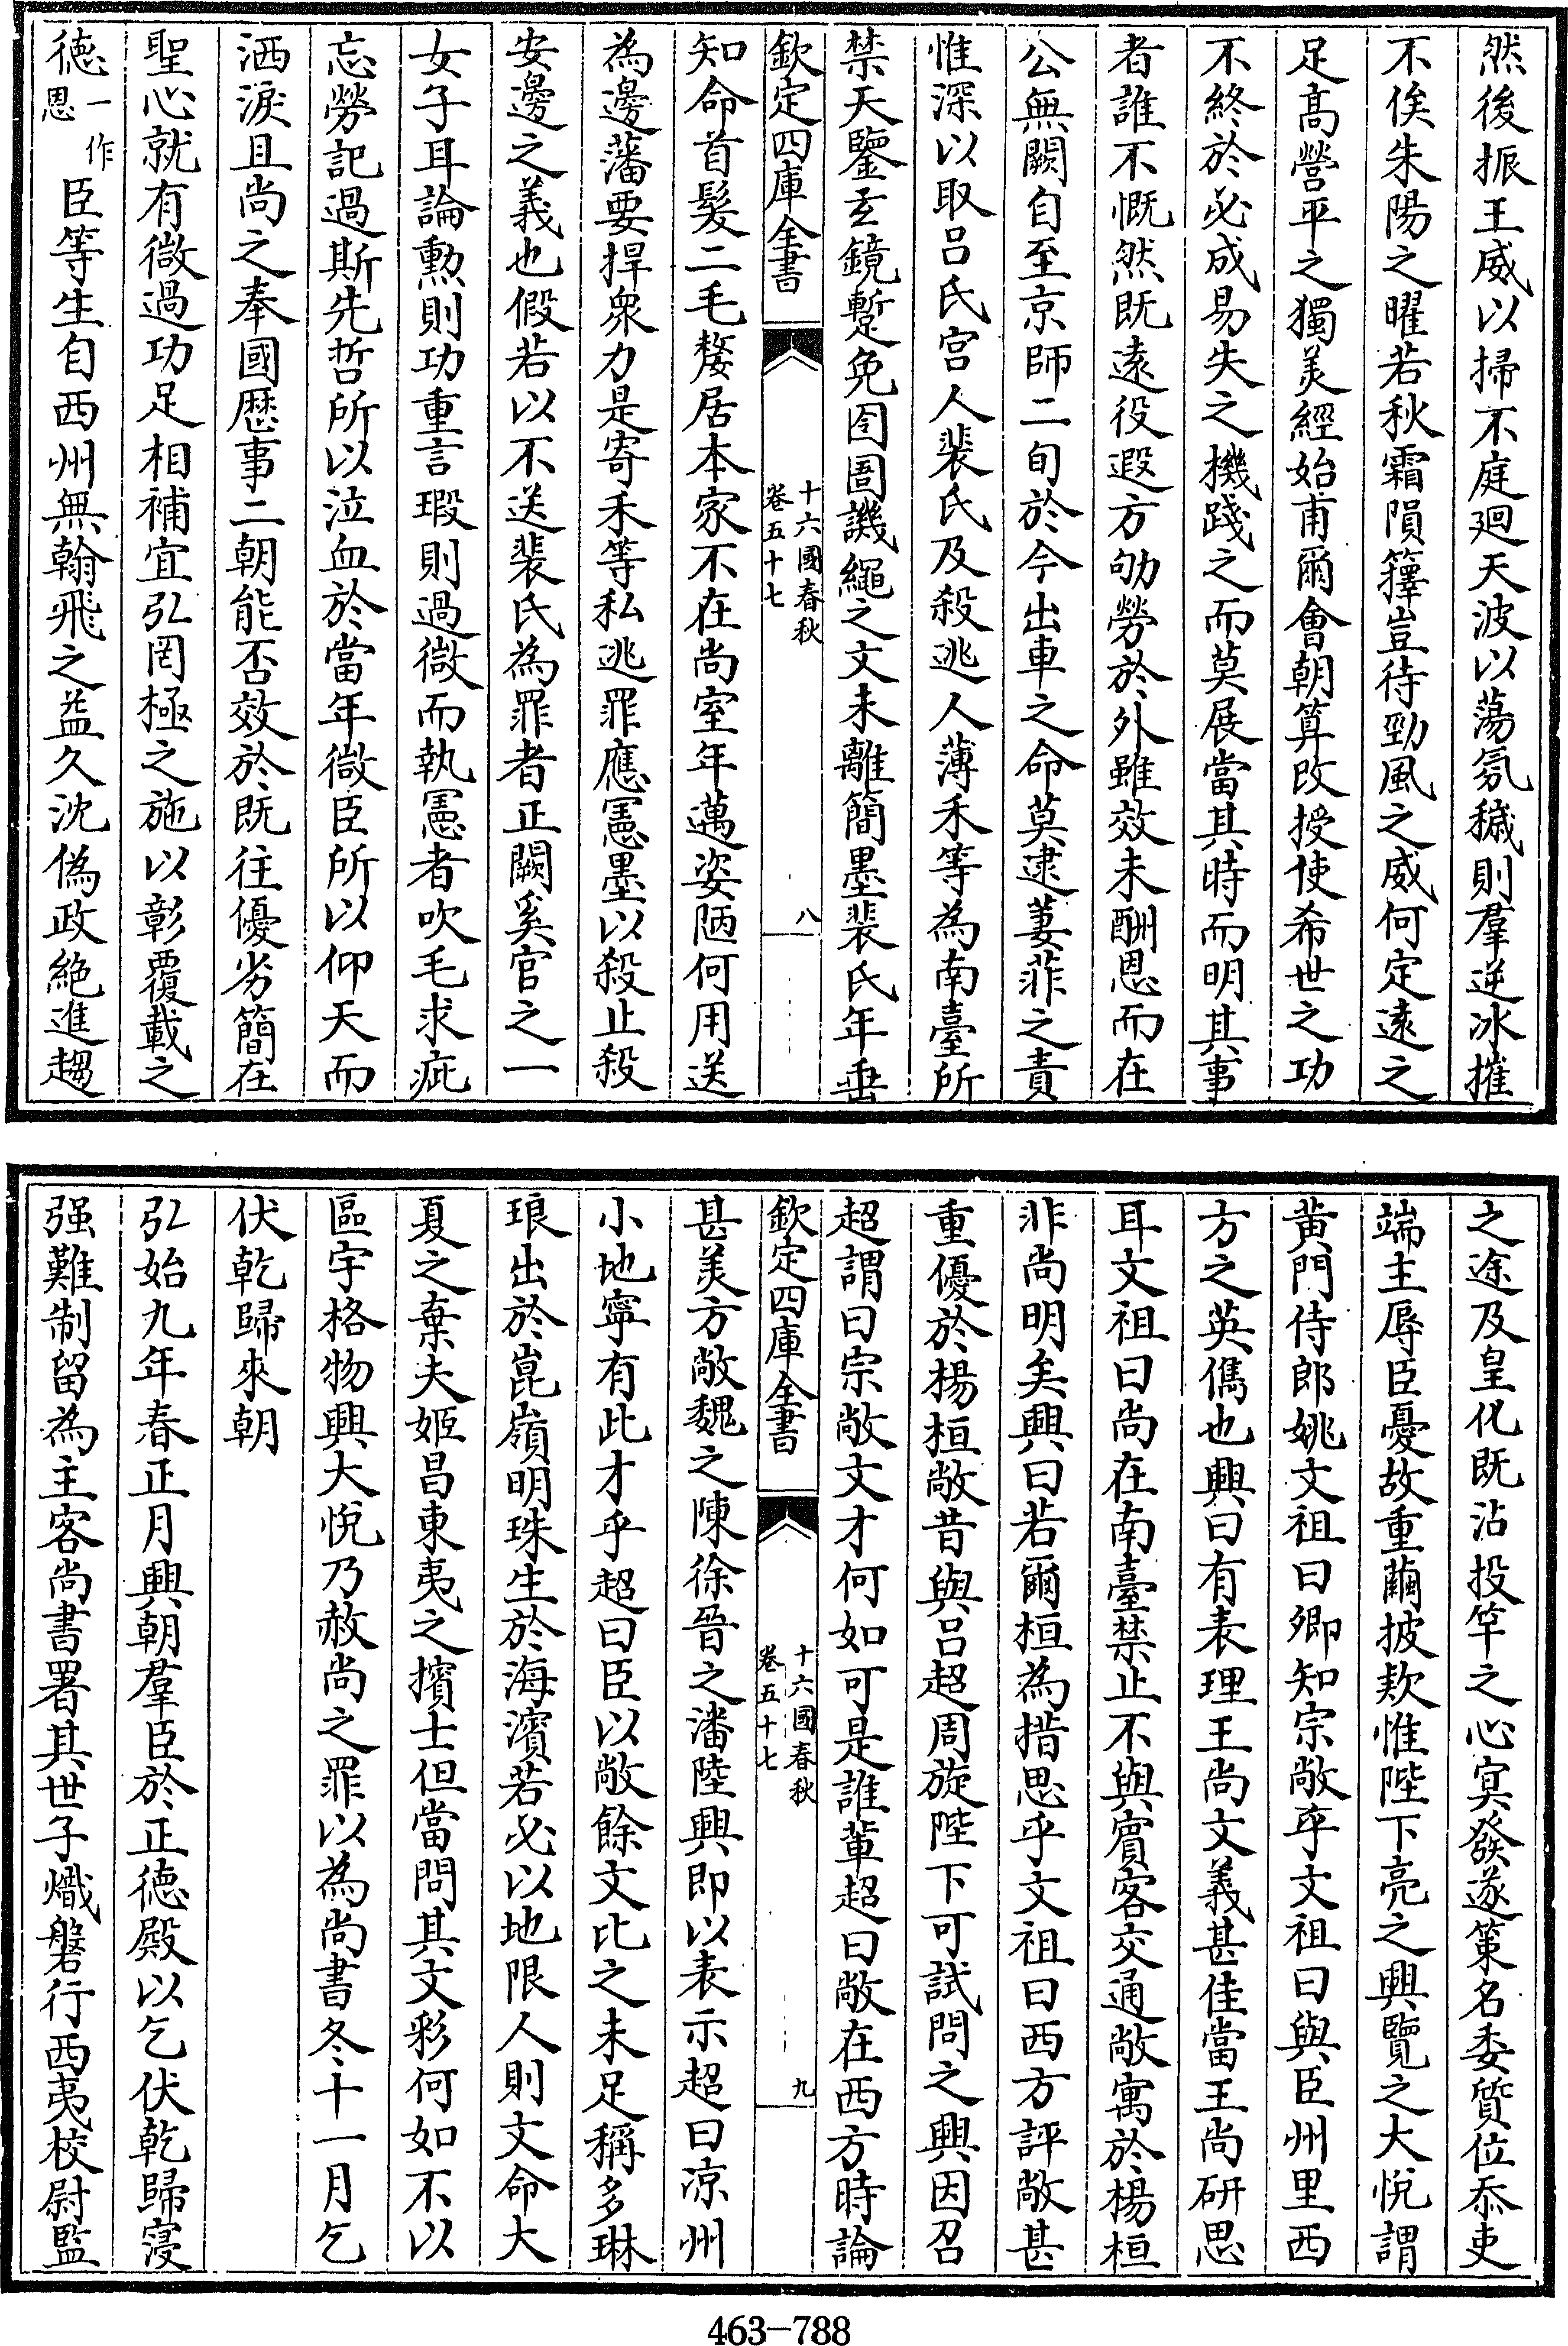 然後振王威以掃不庭廻天波以蕩氛穢則羣逆冰摧
不俟朱陽之曜若秋霜隕籜豈待勁風之威何定遠之
足髙營平之獨美經始甫爾會朝算改授使希世之功
不終於必成易失之機踐之而莫展當其時而明其事
者誰不慨然既遠役遐方劬勞於外雖效未酬恩而在
公無闕自至京師二旬於今出車之命莫逮萋菲之責
惟深以取呂氏宫人裴氏及殺逃人薄禾等為南臺所
禁天鑒玄鏡蹔免囹圄譏繩之文未離簡墨裴氏年垂
欽定四庫全書
十六國春秋
卷五十七
八
知命首髮二毛嫠居本家不在尚室年邁姿陋何用送
為邊藩要捍衆力是寄禾等私逃罪應憲墨以殺止殺
安邊之義也假若以不送裴氏為罪者正闕奚官之一
女子耳論勲則功重言瑕則過㣲而執憲者吹毛求疵
忘勞記過斯先哲所以泣血於當年㣲臣所以仰天而
洒淚且尚之奉國歴事二朝能否效於既往優劣簡在
聖心就有㣲過功足相補宜弘罔極之施以彰覆載之
德一作恩臣等生自西州無翰飛之益久沈偽政絶進趨
之途及皇化既沾投竿之心㝠發遂策名委質位忝吏
端主辱臣憂故重繭披欵惟陛下亮之興覽之大悦謂
黄門侍郎姚文祖曰卿知宗敞乎文祖曰與臣州里西
方之英儁也興曰有表理王尚文義甚佳當王尚研思
耳文祖曰尚在南臺禁止不與賔客交通敞寓於楊桓
非尚明矣興曰若爾桓為措思乎文祖曰西方評敞甚
重優於楊桓敞昔與呂超周旋陛下可試問之興因召
超謂曰宗敞文才何如可是誰輩超曰敞在西方時論
欽定四庫全書
十六國春秋
卷五十七
九
甚美方敞魏之陳徐晉之潘陸興即以表示超曰凉州
小地寧有此才乎超曰臣以敞餘文比之未足稱多琳
琅出於崑嶺明珠生於海濱若必以地限人則文命大
夏之棄夫姬昌東夷之擯士但當問其文彩何如不以
區宇格物興大悦乃赦尚之罪以為尚書冬十一月乞
伏乾歸來朝
弘始九年春正月興朝羣臣於正德殿以乞伏乾歸寖
强難制留為主客尚書署其世子熾磐行西夷校尉監
463-788